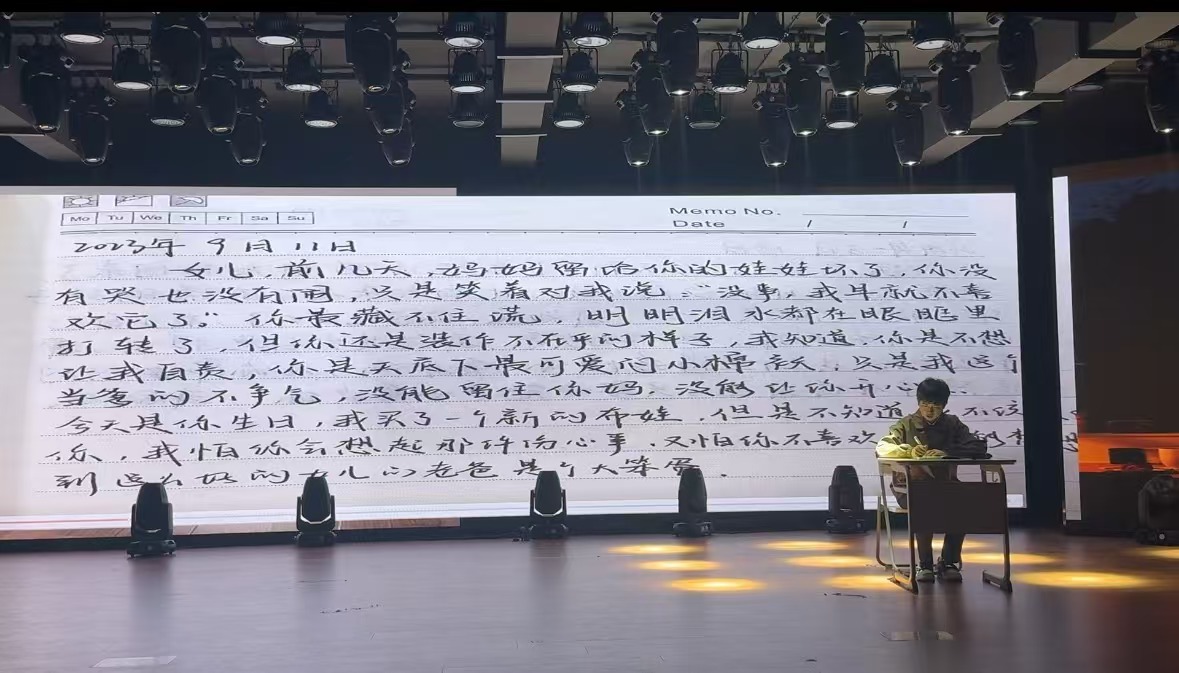 Mo Tu We Th Fr Sa Su
Memo No.
Date / /
2023年 9月11日
女儿,前几天,妈妈留给你的娃娃坏了,你没
有哭也没有闹,只是笑着对我说:“没事,我早就不喜
欢它了。”你最藏不住谎,明明泪水都在眼眶里
打转了,但你还是装作不在乎的样子,我知道,你是不想
让我自责,你是天底下最可爱的小棉袄,只是我这个
当爸的不争气,没能留住你妈,没能让你开心
今天是你生日,我买了一个新的布娃,但是不知道 不该
你,我怕你会想起那件伤心事,又怕你不喜欢
到这么好的女儿的老爸是个大笨蛋.